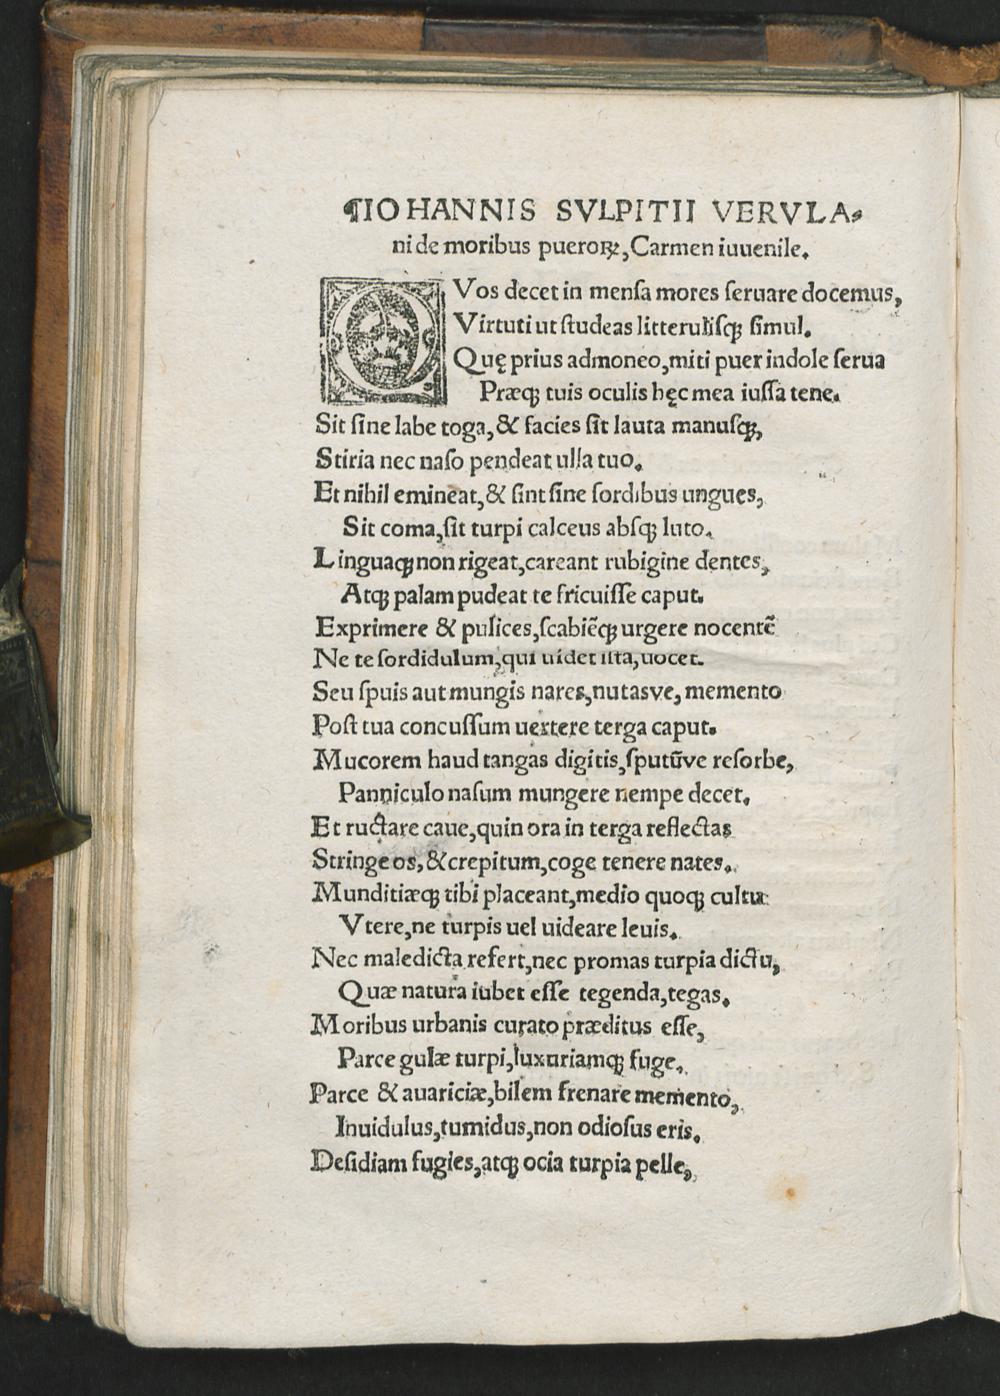 ¶IOHANNIS SVLPITII VERVLA-
ni de moribus pueroꝝ, Carmen iuuenile.
QVos decet in mensa mores seruare docemus,
Virtuti ut studeas litterulisꝗ simul.
Quę prius admoneo, miti puer indole serua
Præꝗ tuis oculis hęc mea iussa tene.
Sit sine labe toga, & facies sit lauta manusꝗ,
Stiria nec naso pendeat ulla tuo.
Et nihil emineat, & sint sine sordibus ungues,
Sit coma, sit turpi calceus absꝗ luto.
Linguaꝗ non rigeat, careant rubigine dentes,
Atꝗ palam pudeat te fricuisse caput.
Exprimere & pulices, scabiẽꝗ urgere nocentẽ
Ne te sordidulum, qui uidet ista, uocet.
Seu spuis aut mungis nares, nutasve, memento
Post tua concussum uertere terga caput.
Mucorem haud tangas digitis, sputũve resorbe,
Panniculo nasum mungere nempe decet.
Et ructare caue, quin ora in terga reflectas
Stringe os, & crepitum, coge tenere nates.
Munditiæꝗ tibi placeant, medio quoꝗ cultu
Vtere, ne turpis uel uideare leuis.
Nec maledicta refert, nec promas turpia dictu,
Quæ natura iubet esse tegenda, tegas.
Moribus urbanis curato præditus esse,
Parce gulæ turpi, luxuriamꝗ fuge.
Parce & auariciæ, bilem frenare memento,
Inuidulus, tumidus, non odiosus eris.
Desidiam fugies, atꝗ ocia turpia pelle,